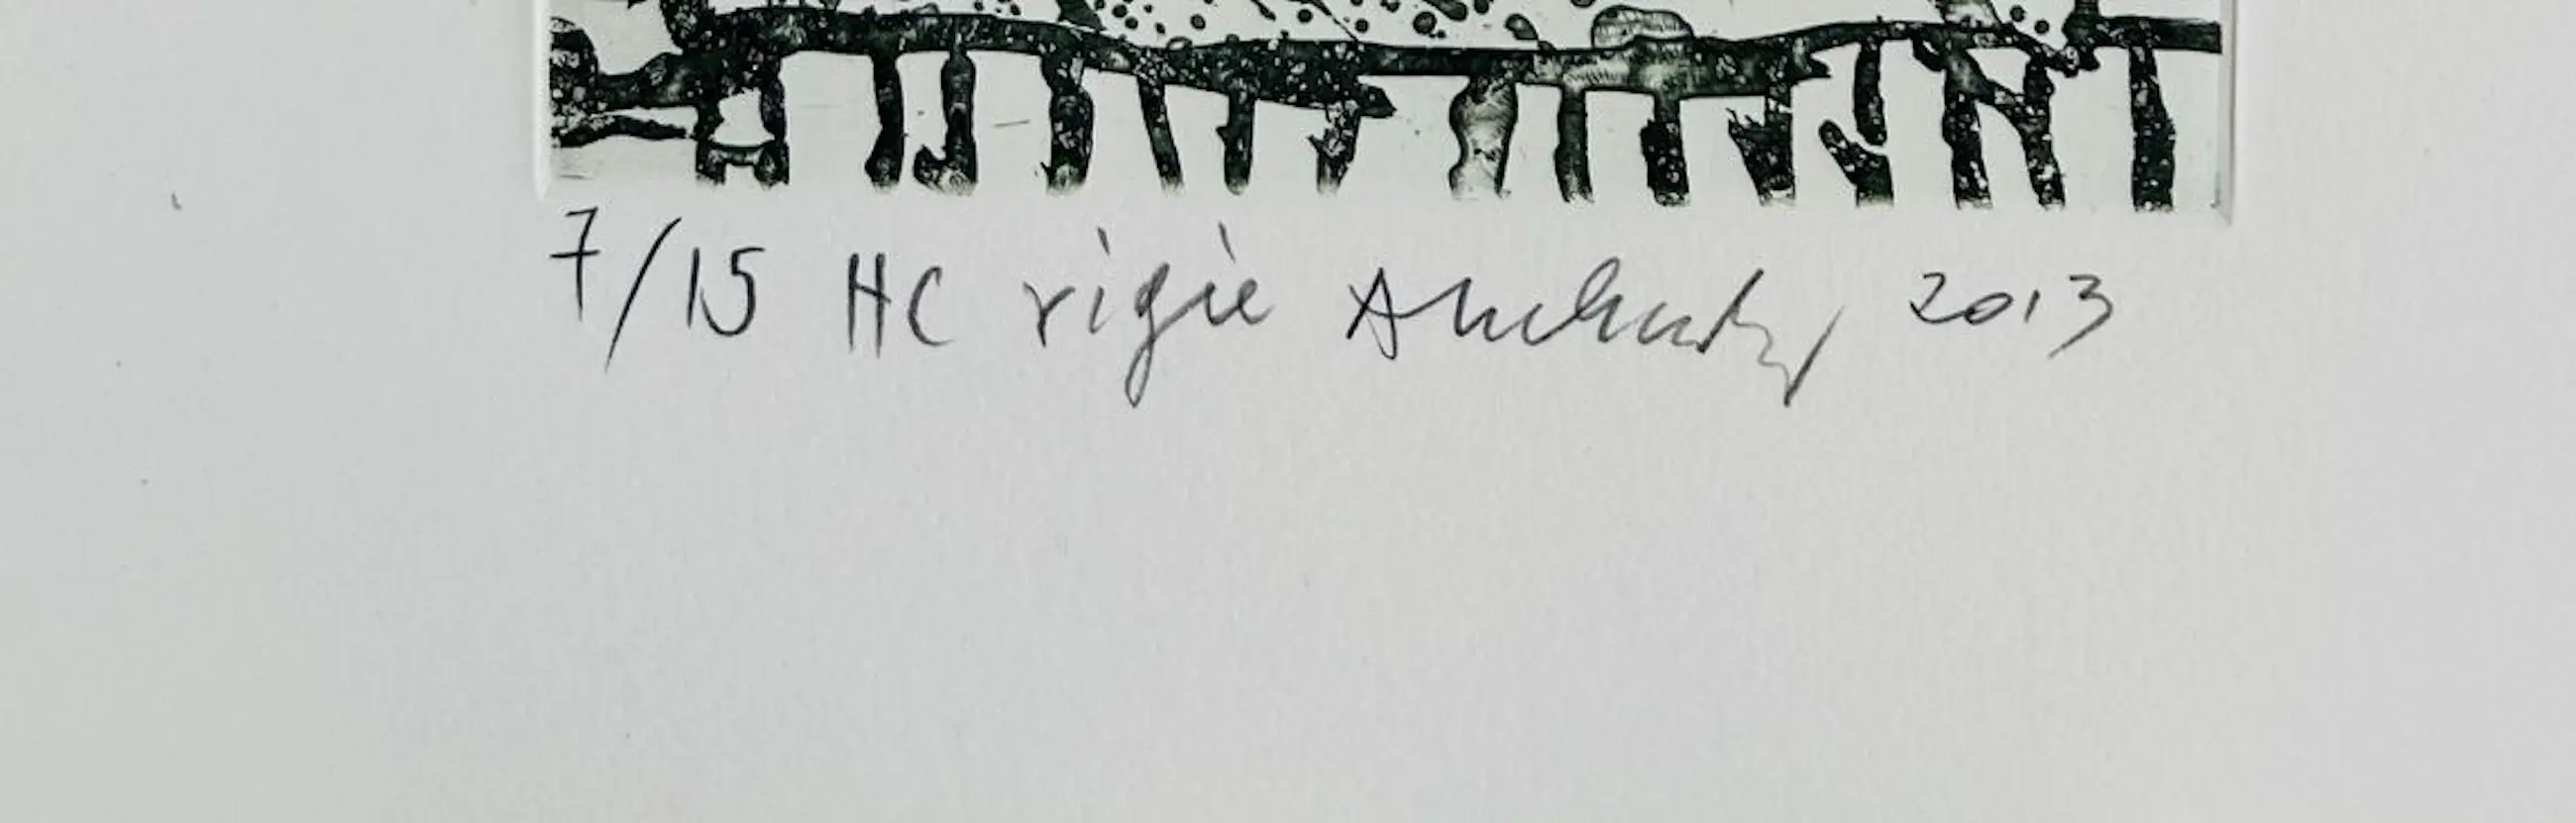 7/15 HC vigie Alechinsky 2013